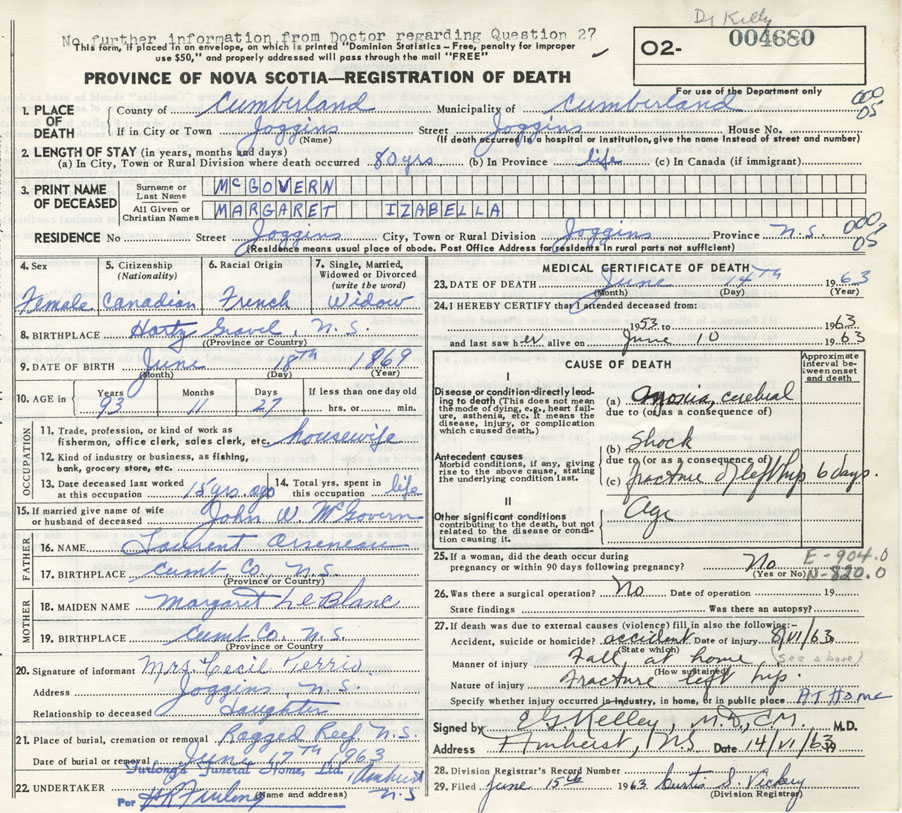 Dr Kelly
No further information from Doctor regarding Question 27
This form, if placed in an envelope, on which is printed "Dominion Statistics—Free, penalty for improper
use $50," and properly addressed will pass through the mail "FREE"
O2- 004680
For use of the Department only
PROVINCE OF NOVA SCOTIA—REGISTRATION OF DEATH
000
05
1. PLACE OF DEATH County of Cumberland Municipality of Cumberland
If in City or Town Joggins (Name) Street Joggins House No.
(If death occurred in a hospital or institution, give the name instead of street and number)
2. LENGTH OF STAY (in years, months and days)
(a) In City, Town or Rural Division where death occurred 80 yrs (b) In Province life (c) In Canada (if immigrant)
3. PRINT NAME OF DECEASED
Surname or Last Name McGOVERN
All Given or Christian Names MARGARET IZABELLA
RESIDENCE No Street Joggins City, Town or Rural Division Joggins Province N.S.
(Residence means usual place of abode. Post Office Address for residents in rural parts not sufficient)
000
05
4. Sex Female
5. Citizenship (Nationality) Canadian
6. Racial Origin French
7. Single, Married, Widowed or Divorced (write the word) Widow
8. BIRTHPLACE Hartz Gravel, N.S.
(Province or Country)
9. DATE OF BIRTH June 18th 1869
(Month) (Day) (Year)
10. AGE in Years 93 Months 11 Days 27 If less than one day old hrs. or min.
OCCUPATION
11. Trade, profession, or kind of work as fisherman, office clerk, sales clerk, etc. housewife
12. Kind of industry or business, as fishing, bank, grocery store, etc.
13. Date deceased last worked at this occupation 15 yrs ago 14. Total yrs. spent in this occupation life
15. If married give name of wife or husband of deceased John W. McGovern
FATHER
16. NAME Laurent Arseneau
17. BIRTHPLACE Cumb. Co., N.S.
(Province or Country)
MOTHER
18. MAIDEN NAME Margaret LeBlanc
19. BIRTHPLACE Cumb Co. N.S.
(Province or Country)
20. Signature of informant Mrs. Cecil
Address Joggins, N.S.
Relationship to deceased Daughter
21. Place of burial, cremation or removal Ragged Reef N.S.
Date of burial or removal June 17th 1963
Furlong's Funeral Home, Ltd. Amherst
22. UNDERTAKER (Name and address) N.S
Per Furlong
MEDICAL CERTIFICATE OF DEATH
23. DATE OF DEATH June 14TH 1963
(Month) (Day) (Year)
24. I HEREBY CERTIFY that I attended deceased from:
1953 to 1963
and last saw her alive on June 10 1963
CAUSE OF DEATH
Approximate interval between onset and death
I
Disease or condition directly leading to death (This does not mean the mode of dying, e.g., heart failure, asthenia, etc. It means the disease, injury, or complication which caused death.)
(a) Anoxia, cerebral
due to (or as a consequence of)
Antecedent causes
Morbid conditions, if any, giving rise to the above cause, stating the underlying condition last.
(b) Shock
due to (or as a consequence of)
(c) fracture of left hip 6 days.
II
Other significant conditions contributing to the death, but not related to the disease or condition causing it.
Age
25. If a woman, did the death occur during pregnancy or within 90 days following pregnancy? No (Yes or No)
E-904.0
N-820.0
26. Was there a surgical operation? No Date of operation 19
State findings Was there an autopsy?
27. If death was due to external causes (violence) fill in also the following:—
Accident, suicide or homicide? accident Date of injury 8/VI/63
(State which)
Manner of injury Fall, at home (see above)
(How sustained)
Nature of injury Fracture left hip.
Specify whether injury occurred in industry, in home, or in public place AT Home
Signed by E G Kelley, M.D., C.M. M.D.
Address Amherst, N.S. Date 14/VI/63 19
28. Division Registrar's Record Number
29. Filed June 15th 1963 Curtis S. Vickery
(Division Registrar)